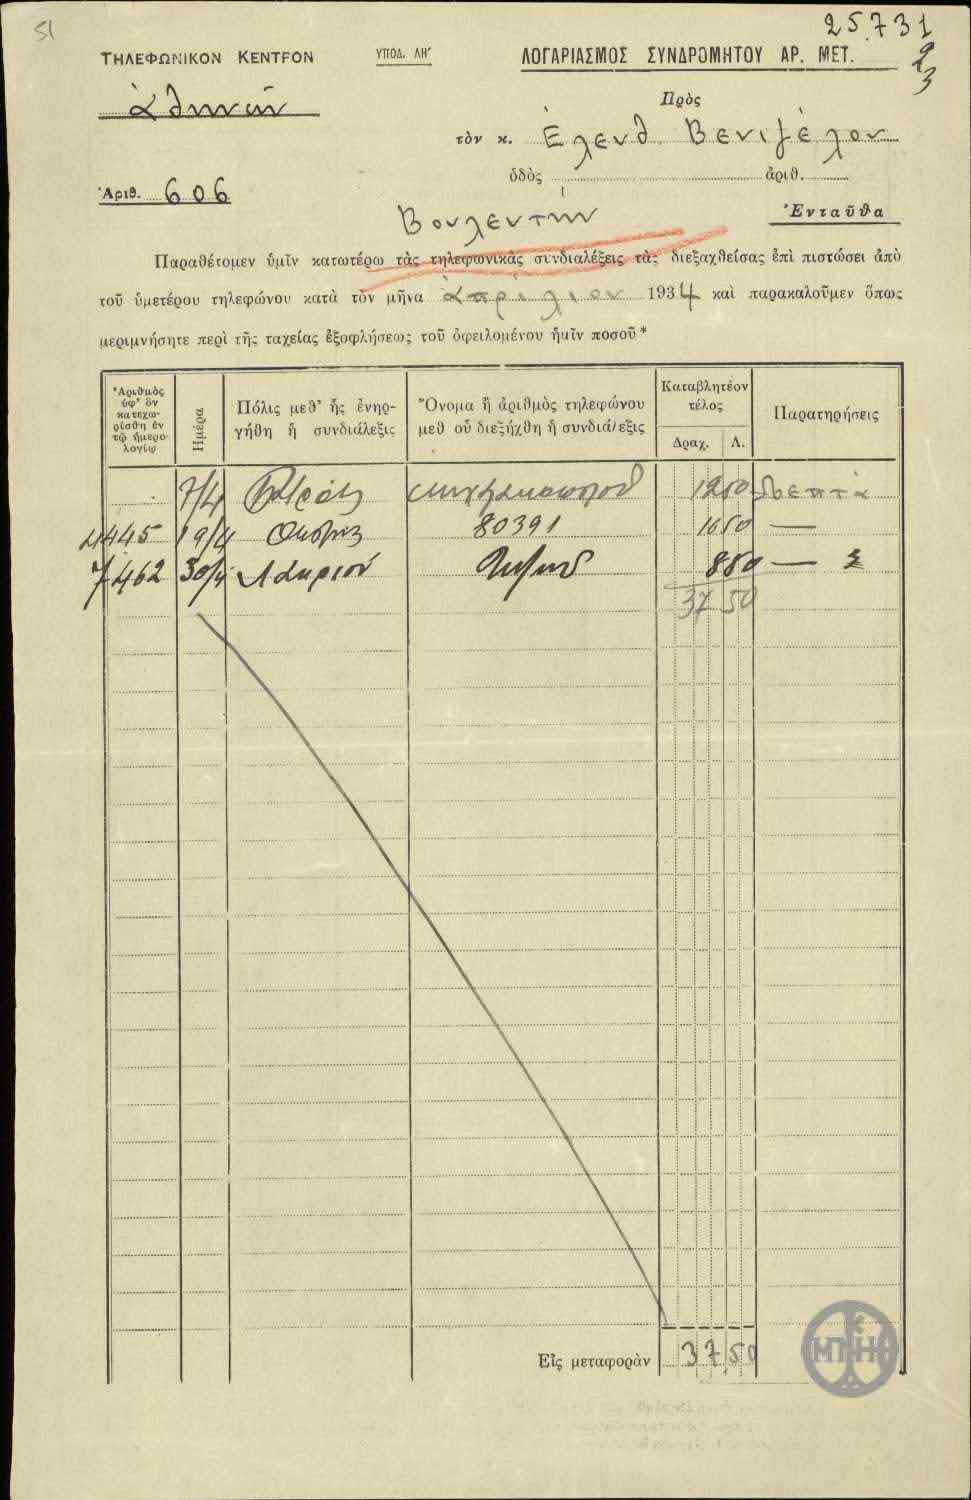 51
25.731
93
ΤΗΛΕΦΩΝΙΚΟΝ ΚΕΝΤΡΟΝ
ΥΠΟΔ. ΛΗ'
ΛΟΓΑΡΙΑΣΜΟΣ ΣΥΝΔΡΟΜΗΤΟΥ ΑΡ. ΜΕΤ.
Ἀθηνῶν
Πρὸς
τὸν κ. Ἐλευθ. Βενιζέλον
ὁδὸς ἀριθ.
Ἀριθ. 606
Βουλευτὴν
Ἐνταῦθα
Παραθέτομεν ὑμῖν κατωτέρω τὰς τηλεφωνικὰς συνδιαλέξεις τὰς διεξαχθείσας ἐπὶ πιστώσει ἀπὸ
τοῦ ὑμετέρου τηλεφώνου κατὰ τὸν μῆνα Ἀπρίλιον 1934 καὶ παρακαλοῦμεν ὅπως
μεριμνήσητε περὶ τῆς ταχείας ἐξοφλήσεως τοῦ ὀφειλομένου ἡμῖν ποσοῦ*
Ἀριθμὸς ὑφ' ὃν κατεχωρίσθη ἐν τῷ ἡμερολογίῳ
Ἡμέρα
Πόλις μεθ' ἧς ἐνηργήθη ἡ συνδιάλεξις
Ὄνομα ἢ ἀριθμὸς τηλεφώνου μεθ οὗ διεξήχθη ἡ συνδιάλεξις
Καταβλητέον τέλος
Δραχ. Λ.
Παρατηρήσεις
7/4 Πάτρας 12 50 Λεπτὰ
4445 19/4 80391 16 50 —
7462 30/4 Λαυρίου 8 50 — Σ
37 50
Εἰς μεταφορὰν 37 50